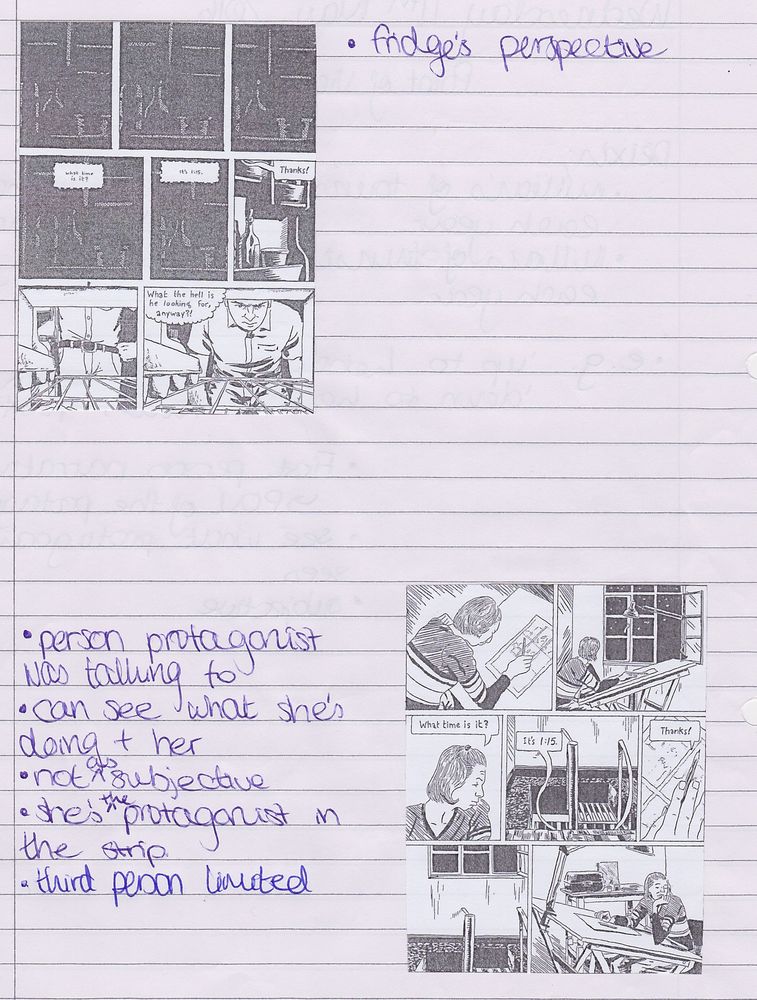 • fridge's perspective
what time
is it?
It's 1:15.
Thanks!
What the hell is
he looking for,
anyway?!
• person protagonist
was talking to
• can see what she's
doing + her
• not as subjective
• she's the protagonist in
the strip
• third person limited
What time is it?
It's 1:15.
Thanks!